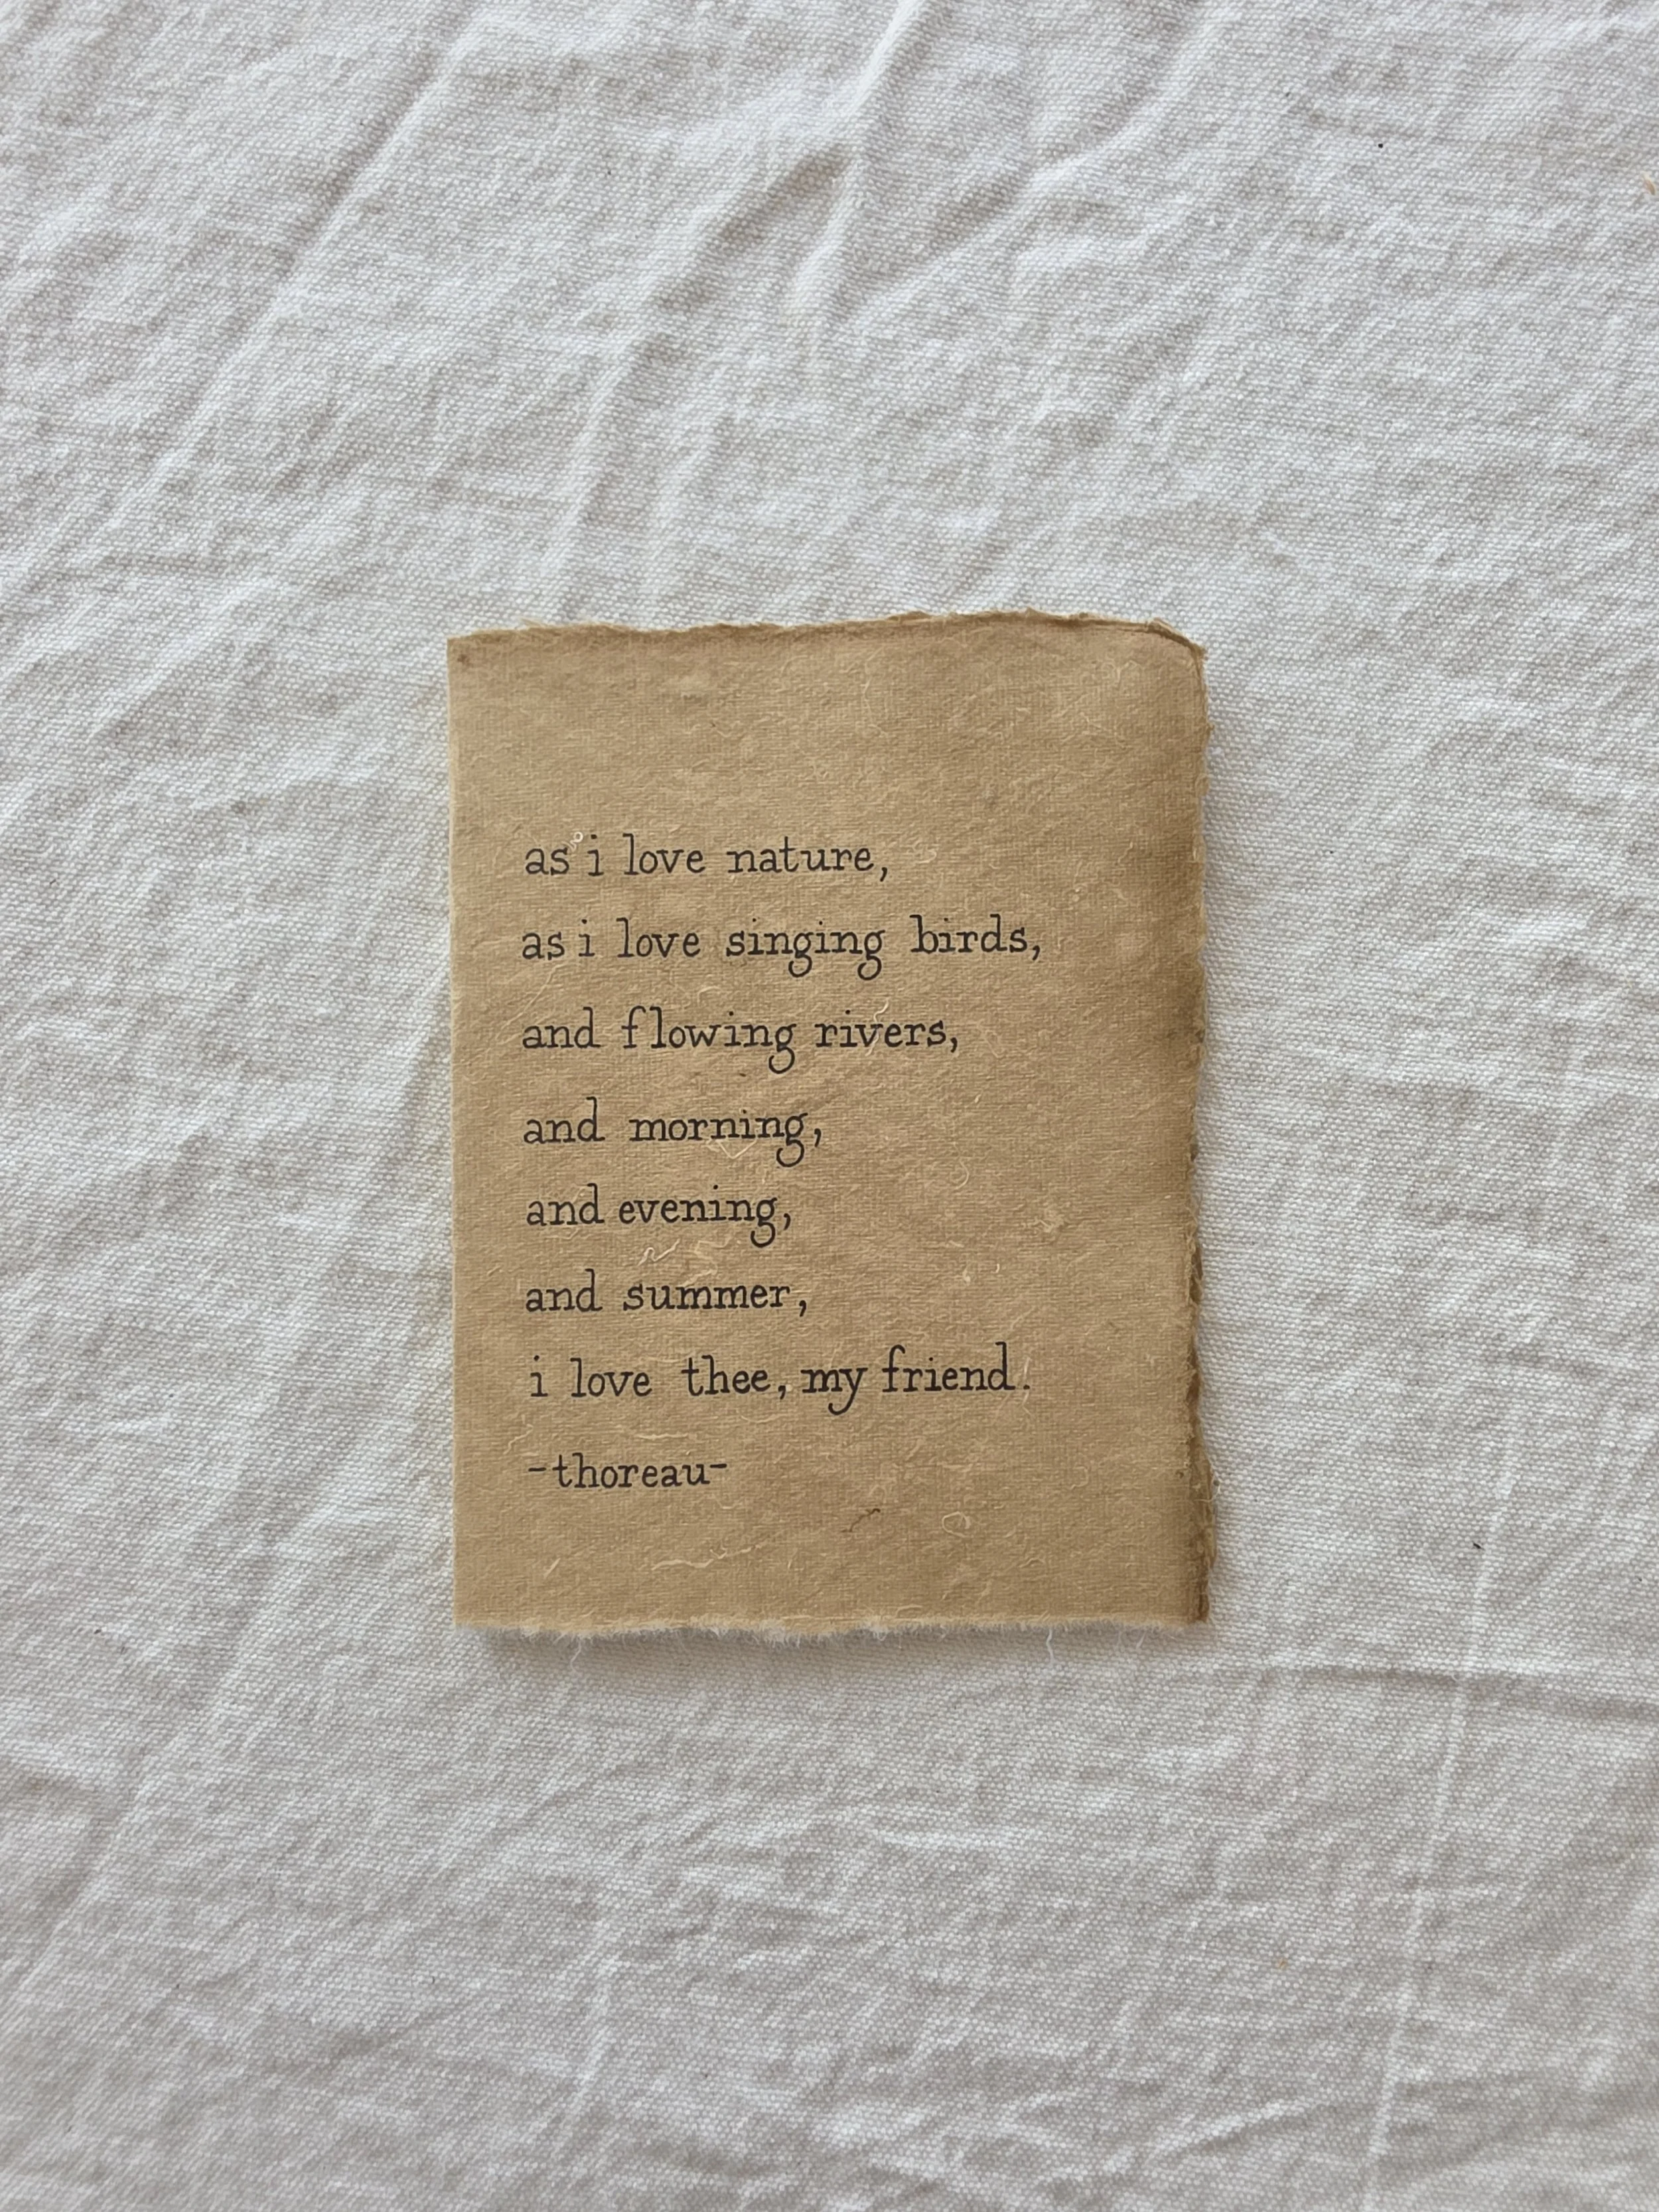 as i love nature,
as i love singing birds,
and flowing rivers,
and morning,
and evening,
and summer,
i love thee, my friend.
-thoreau-